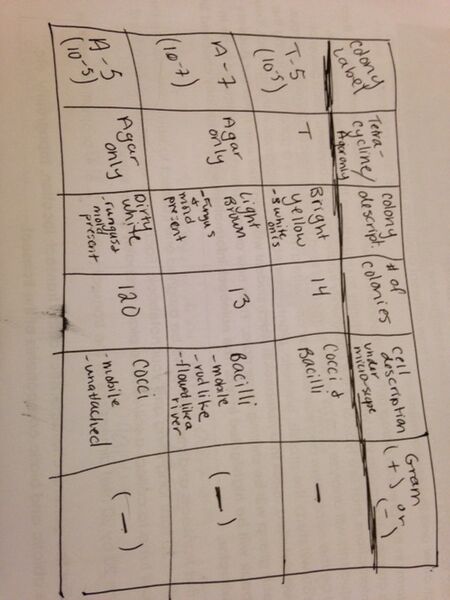 Colony
Label
Tetra-
cycline/
Agar only
colony
descript.
# of
colonies
Cell
description
under
micro-scope
Gram
(+) or
(-)
T-5
(10-5)
T
Bright
yellow
- 3 white
ones
14
Cocci &
Bacilli
-
A-7
(10-7)
Agar
only
Light
Brown
- Fungus
&
mold
present
13
Bacilli
- mobile
- rod like
- flowd like a
river
(-)
A-5
(10-5)
Agar
only
Dirty
white
- fungus &
mold
present
120
cocci
- mobile
- unattached
(-)